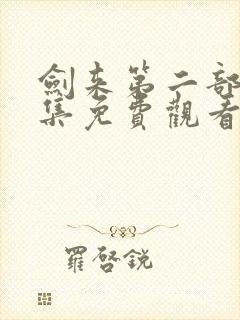 劍来第二部
集免費觀看
羅啓銳